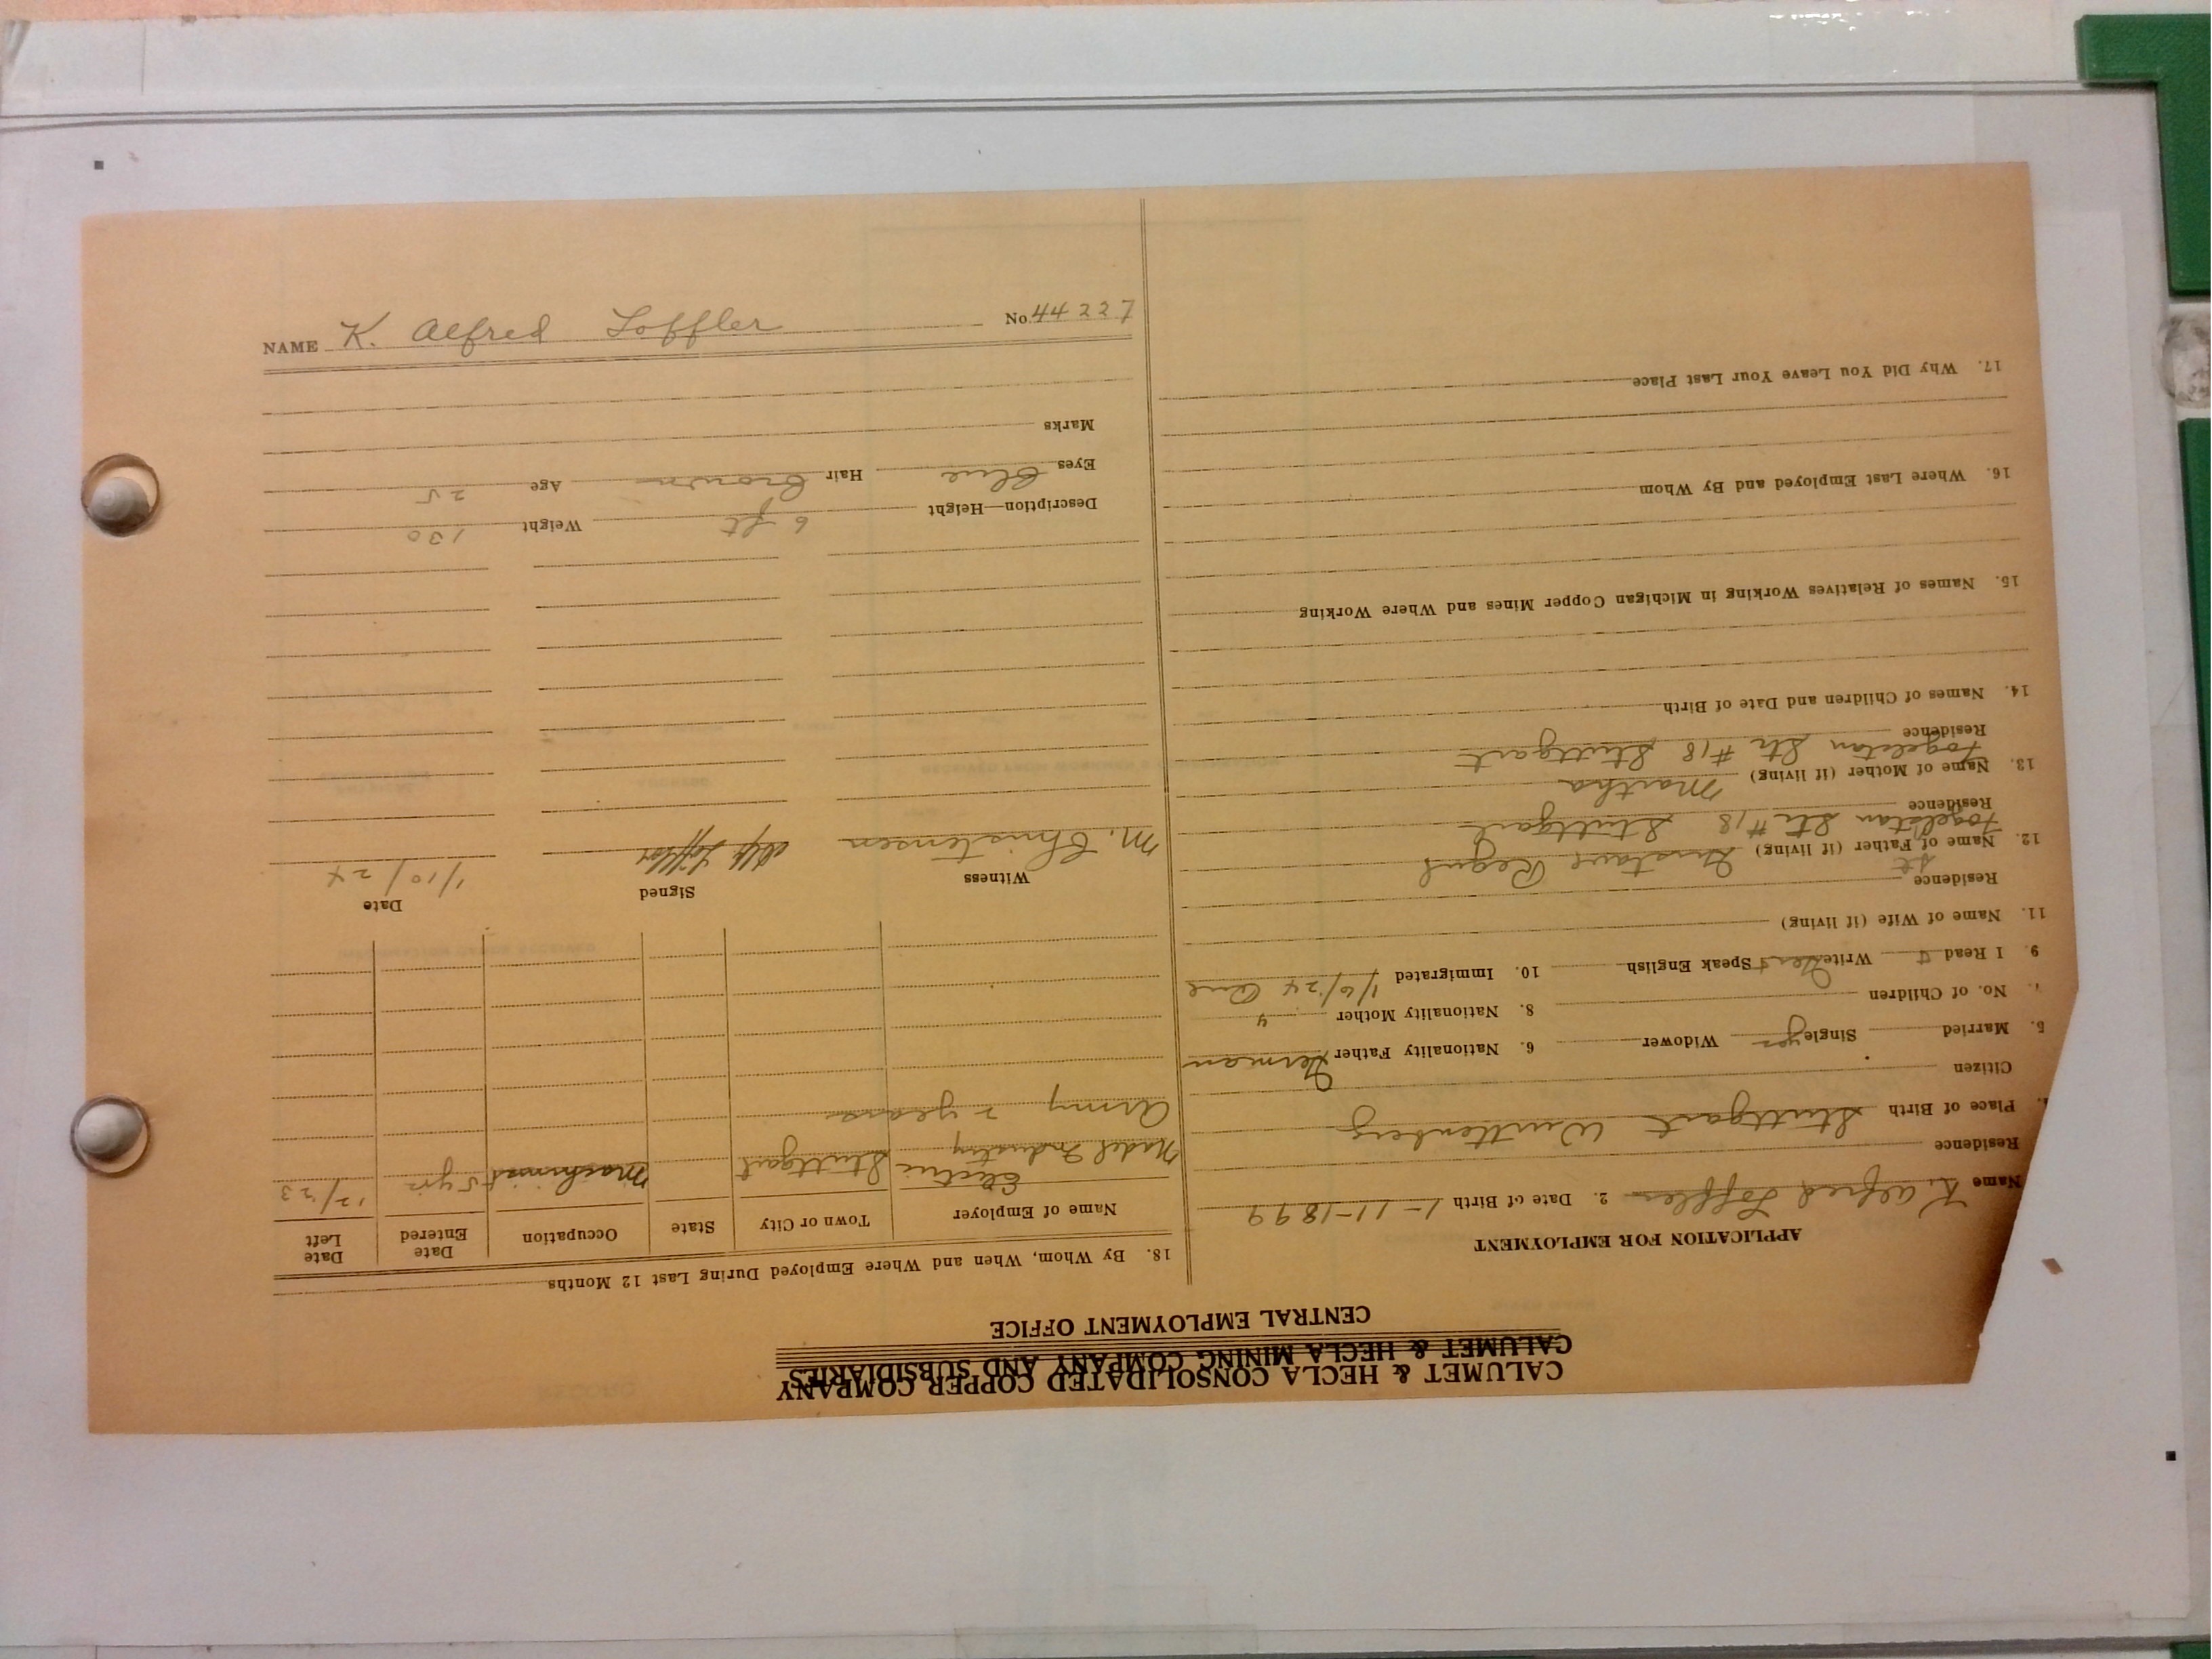 CALUMET & HECLA CONSOLIDATED COPPER COMPANY
CALUMET & HECLA MINING COMPANY AND SUBSIDIARIES
CENTRAL EMPLOYMENT OFFICE
APPLICATION FOR EMPLOYMENT
Name K. Alfred Loffler 2. Date of Birth 1-11-1899
Residence
Place of Birth Stuttgart Wurttenberg
Citizen
5. Married Single yes Widower 6. Nationality Father German
7. No. of Children 8. Nationality Mother "
9. I Read & Write Gers & Speak English 10. Immigrated 1/6/24
11. Name of Wife (if living)
Residence
12. Name of Father (if living) Gustave
Residence Str #18 Stuttgart
13. Name of Mother (if living) Martha
Residence Str #18 Stuttgart
14. Names of Children and Date of Birth
15. Names of Relatives Working in Michigan Copper Mines and Where Working
16. Where Last Employed and By Whom
17. Why Did You Leave Your Last Place
18. By Whom, When and Where Employed During Last 12 Months
Name of Employer Town or City State Occupation Date Entered Date Left
Electric Stuttgart Machinist 5 yrs 12/23
Industry
Army 2 years
Witness Signed Date
M. Christensen Alf Loffler 1/10/24
Description—Height 6 ft Weight 130
Eyes Blue Hair Brown Age 25
Marks
NAME K. Alfred Loffler No. 44227